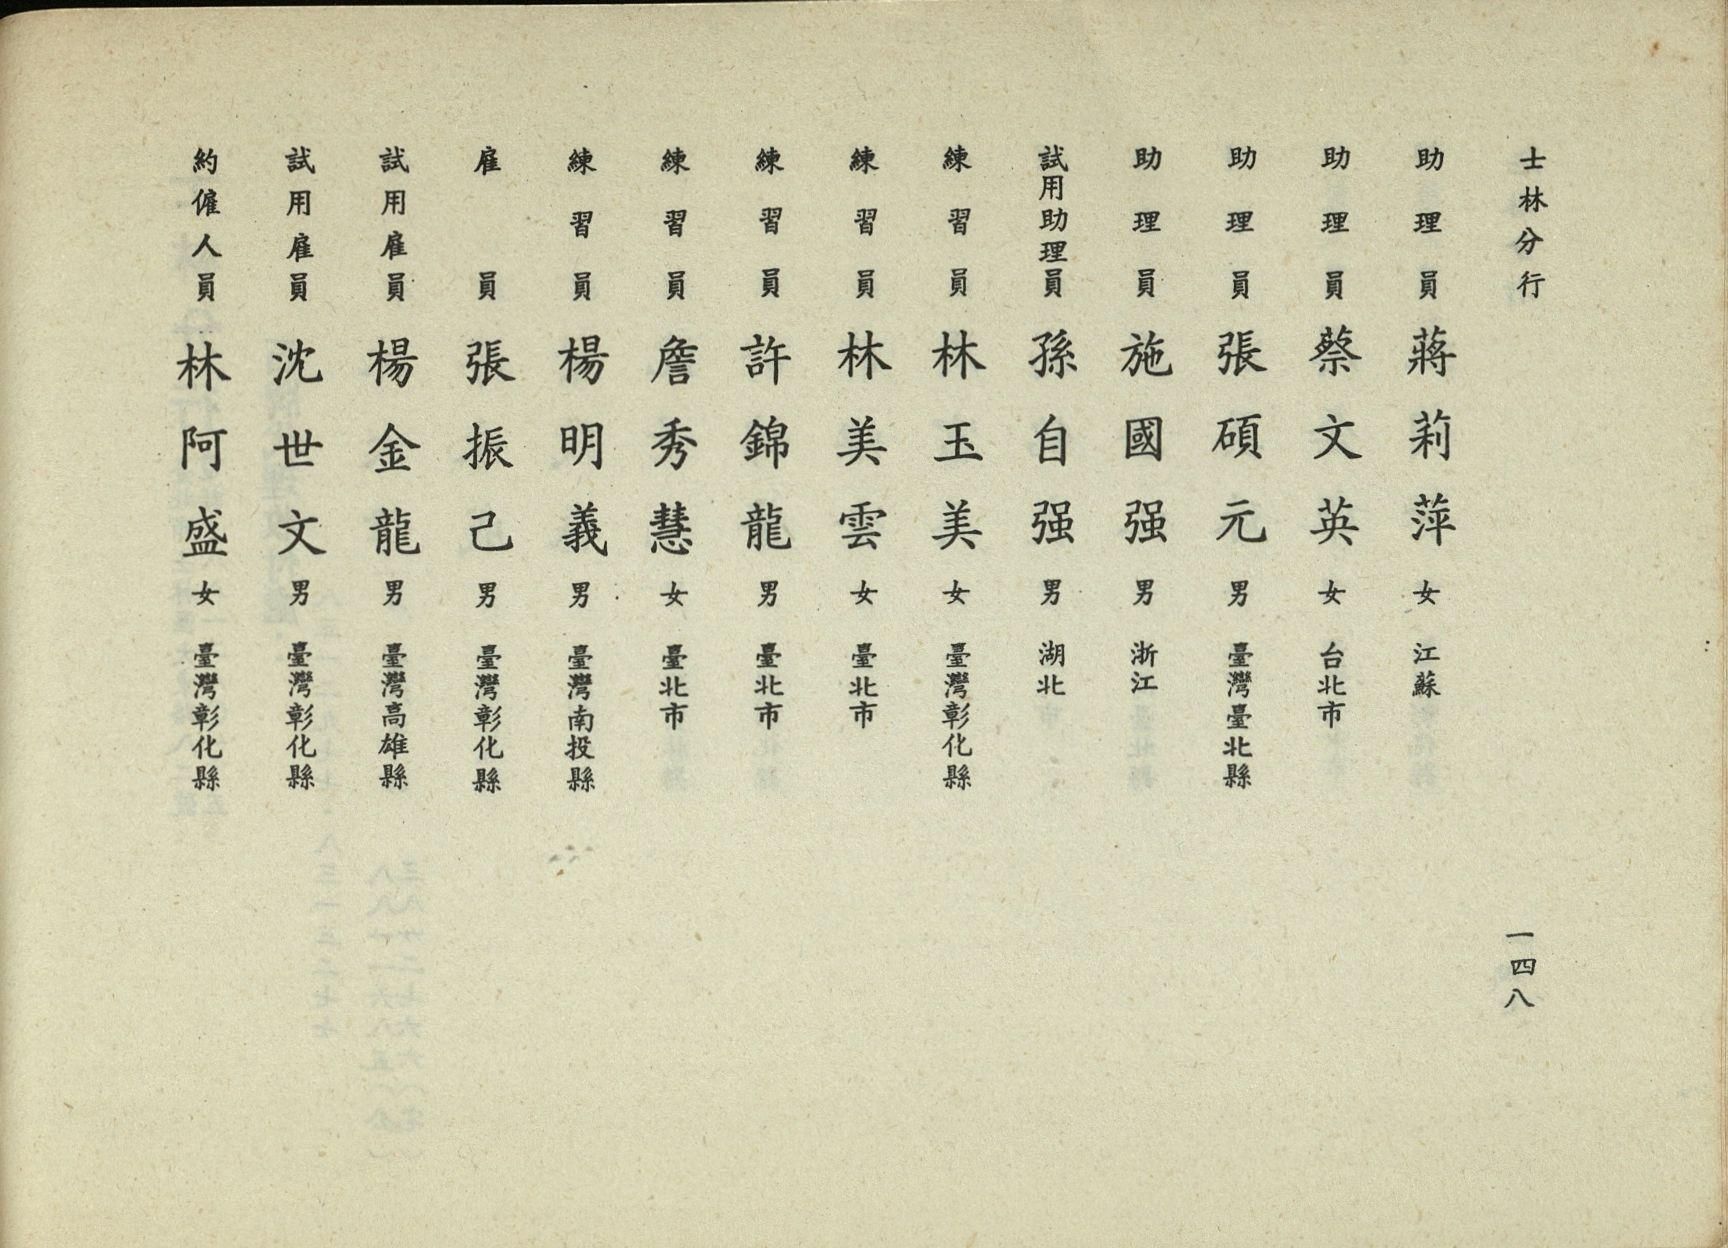 士林分行
一四八
助理員 蔣莉萍 女 江蘇
助理員 蔡文英 女 台北市
助理員 張碩元 男 臺灣臺北縣
助理員 施國强 男 浙江
試用助理員 孫自强 男 湖北
練習員 林玉美 女 臺灣彰化縣
練習員 林美雲 女 臺北市
練習員 許錦龍 男 臺北市
練習員 詹秀慧 女 臺北市
練習員 楊明義 男 臺灣南投縣
雇員 張振己 男 臺灣彰化縣
試用雇員 楊金龍 男 臺灣高雄縣
試用雇員 沈世文 男 臺灣彰化縣
約僱人員 林阿盛 女 臺灣彰化縣